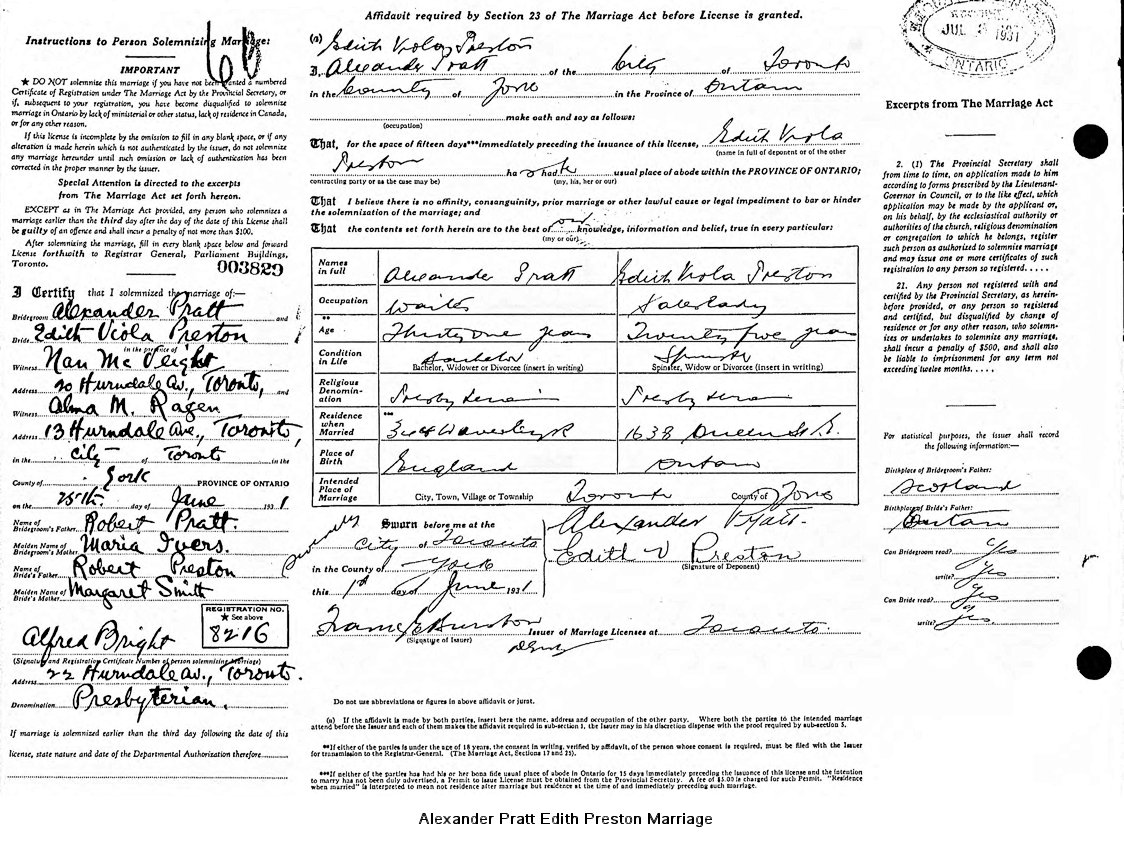 Instructions to Person Solemnizing Marriage:
66
IMPORTANT
★ DO NOT solemnize this marriage if you have not been granted a numbered
Certificate of Registration under The Marriage Act by the Provincial Secretary, or
if, subsequent to your registration, you have become disqualified to solemnize
marriage in Ontario by lack of ministerial or other status, lack of residence in Canada,
or for any other reason.
If this license is incomplete by the omission to fill in any blank space, or if any
alteration is made herein which is not authenticated by the issuer, do not solemnize
any marriage hereunder until such omission or lack of authentication has been
corrected in the proper manner by the issuer.
Special Attention is directed to the excerpts
from The Marriage Act set forth hereon.
EXCEPT as in The Marriage Act provided, any person who solemnizes a
marriage earlier than the third day after the day of the date of this License shall
be guilty of an offence and shall incur a penalty of not more than $100.
After solemnizing the marriage, fill in every blank space below and forward
License forthwith to Registrar General, Parliament Buildings,
Toronto. 003829
I Certify that I solemnized the marriage of:—
Bridegroom Alexander Pratt and
Bride Edith Viola Preston
in the presence of
Witness Nan McVeigh
Address 20 Hurndale Av., Toronto, and
Witness Alma M. Ragen
Address 13 Hurndale Ave., Toronto,
in the City of Toronto in the
County of York PROVINCE OF ONTARIO
on the 25th. day of June 1931
Name of Bridegroom's Father Robert Pratt.
Maiden Name of Bridegroom's Mother Maria Ivers.
Name of Bride's Father Robert Preston
Maiden Name of Bride's Mother Margaret Smith
REGISTRATION NO.
★ See above
8216
Alfred Bright
(Signature and Registration Certificate Number of person solemnizing Marriage)
Address 22 Hurndale Av., Toronto.
Denomination Presbyterian.
If marriage is solemnized earlier than the third day following the date of this
license, state nature and date of the Departmental Authorization therefore
Affidavit required by Section 23 of The Marriage Act before License is granted.
(a) Edith Viola Preston
I, Alexander Pratt of the City of Toronto
in the County of York in the Province of Ontario
(occupation) make oath and say as follows:
That, for the space of fifteen days***immediately preceding the issuance of this license, Edith Viola
(name in full of deponent or of the other
Preston ha s had h usual place of abode within the PROVINCE OF ONTARIO;
contracting party as the case may be) (my, his, her or our)
That I believe there is no affinity, consanguinity, prior marriage or other lawful cause or legal impediment to bar or hinder
the solemnization of the marriage; and
That the contents set forth herein are to the best of our knowledge, information and belief, true in every particular:
(my or our)
Names in full Alexander Pratt Edith Viola Preston
Occupation Waiter Saleslady
**
Age Thirty One years Twenty five years
Condition in Life Bachelor Spinster
Bachelor, Widower or Divorcee (insert in writing) Spinster, Widow or Divorcee (insert in writing)
Religious Denomination Presbyterian Presbyterian
***
Residence when Married 344 Waverley R 1638 Queen St E.
Place of Birth England Ontario
Intended Place of Marriage City, Town, Village or Township Toronto County of York
Severally Sworn before me at the
City of Toronto
in the County of York
this 1st day of June 1931
Alexander Pratt.
Edith V Preston
(Signature of Deponent)
(Signature of Issuer) Issuer of Marriage Licenses at Toronto.
Deputy
Do not use abbreviations or figures in above affidavit or jurat.
(a) If the affidavit is made by both parties, insert here the name, address and occupation of the other party. Where both the parties to the intended marriage
attend before the Issuer and each of them makes the affidavit required in sub-section 1, the Issuer may in his discretion dispense with the proof required by sub-section 5.
**If either of the parties is under the age of 18 years, the consent in writing, verified by affidavit, of the person whose consent is required, must be filed with the Issuer
for transmission to the Registrar-General. (The Marriage Act, Sections 17 and 25).
***If neither of the parties has had his or her bona fide usual place of abode in Ontario for 15 days immediately preceding the issuance of this license and the intention
to marry has not been duly advertised, a Permit to issue License must be obtained from the Provincial Secretary. A fee of $5.00 is charged for such Permit. "Residence
when married" is interpreted to mean not residence after marriage but residence at the time of and immediately preceding such marriage.
JUL 1931
ONTARIO
Excerpts from The Marriage Act
2. (1) The Provincial Secretary shall
from time to time, on application made to him
according to forms prescribed by the Lieutenant-
Governor in Council, or to the like effect, which
application may be made by the applicant or,
on his behalf, by the ecclesiastical authority or
authorities of the church, religious denomination
or congregation to which he belongs, register
such person as authorized to solemnize marriage
and may issue one or more certificates of such
registration to any person so registered. . . . .
21. Any person not registered with and
certified by the Provincial Secretary, as herein-
before provided, or any person so registered
and certified, but disqualified by change of
residence or for any other reason, who solemn-
izes or undertakes to solemnize any marriage,
shall incur a penalty of $500, and shall also
be liable to imprisonment for any term not
exceeding twelve months. . . . .
For statistical purposes, the issuer shall record
the following information:—
Birthplace of Bridegroom's Father:
Scotland
Birthplace of Bride's Father:
Ontario
Can Bridegroom read? Yes
write? Yes
Can Bride read? Yes
write? Yes
Alexander Pratt Edith Preston Marriage